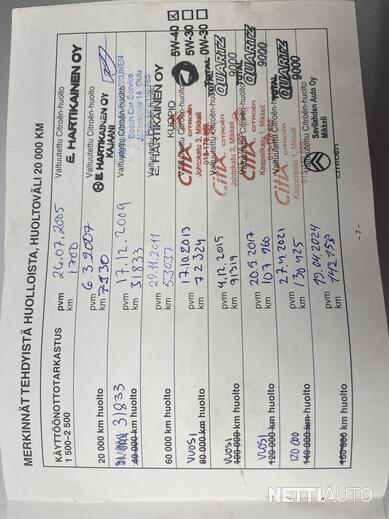 MERKINNÄT TEHDYISTÄ HUOLLOISTA, HUOLTOVÄLI 20 000 KM
KÄYTTÖÖNOTTOTARKASTUS
1 500–2 500
pvm 26.07.2005
km 1700
Valtuutettu Citroën-huolto
E. HARTIKAINEN OY
20 000 km huolto
pvm 6.3.2007
km 7530
Valtuutettu Citroën-huolto
E. HARTIKAINEN OY
KAJAANI
31833
40 000 km huolto
pvm 17.12.2009
km 31833
Valtuutettu Citroën-huolto
Bosch Car Service
60 000 km huolto
pvm 22.11.2011
km 53037
Valtuutettu Citroën-huolto
E. HARTIKAINEN OY
KUOPIO
VUOSI
80 000 km huolto
pvm 17.10.2013
km 72324
Valtuutettu Citroën-huolto
CITROËN
Johtokatu 3, Mikkeli
5W-40
5W-30
0W-30
VUOSI
100 000 km huolto
pvm 4.12.2015
km 91319
Valtuutettu Citroën-huolto
CITROËN
Johtokatu 3, Mikkeli
TOTAL
QUARTZ
9000
VUOSI
120 000 km huolto
pvm 20.9.2017
km 107960
Valtuutettu Citroën-huolto
CITROËN
Kappelikatu 1, Mikkeli
QUARTZ
9000
120 000
140 000 km huolto
pvm 27.4.2021
km 130425
Valtuutettu Citroën-huolto
CITROËN
Kappelikatu 1, Mikkeli
TOTAL
QUARTZ
9000
160 000 km huolto
pvm 19.04.2024
km 142153
Valtuutettu Citroën-huolto
Savilahden Auto Oy
Mikkeli
CITROËN
- 7 -
NETTIAUTO